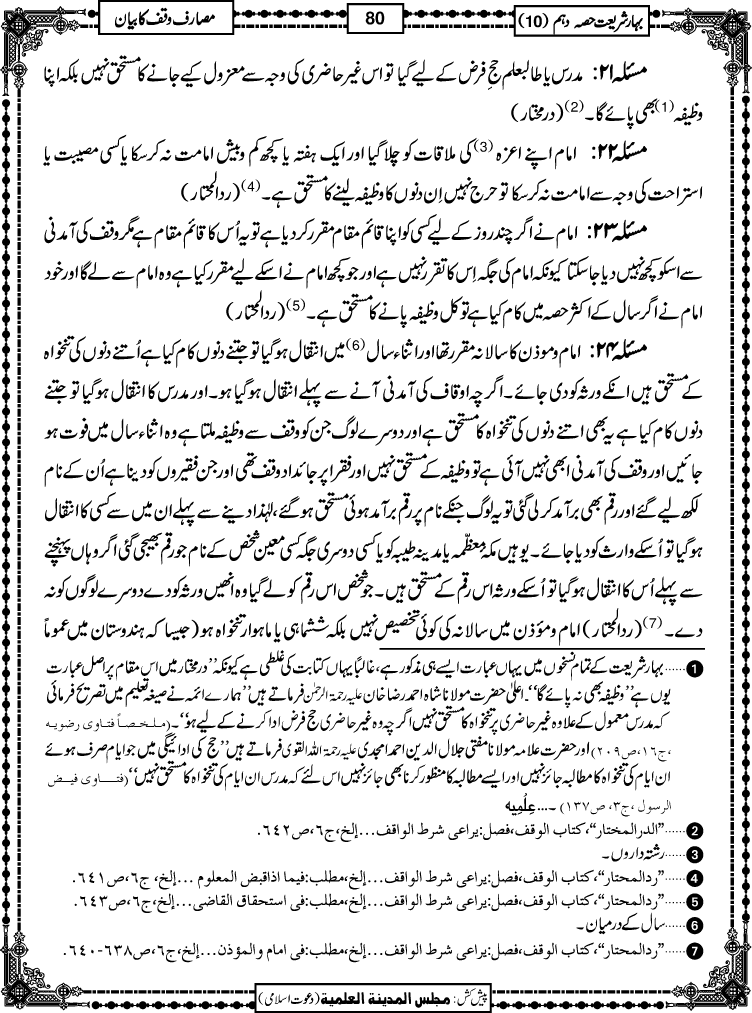 بہار شریعت حصہ دہم (10)
80
مصارف وقف کا بیان
مسئلہ ۲۱: مدرس یا طالبعلم حجِ فرض کے لیے گیا تو اس غیر حاضری کی وجہ سے معزول کیے جانے کا مستحق نہیں بلکہ اپنا
وظیفہ(1) بھی پائے گا۔(2) (درمختار)
مسئلہ ۲۲: امام اپنے اعزہ (3) کی ملاقات کو چلا گیا اور ایک ہفتہ یا کچھ کم و بیش امامت نہ کرسکا یا کسی مصیبت یا
استراحت کی وجہ سے امامت نہ کرسکا تو حرج نہیں اِن دنوں کا وظیفہ لینے کا مستحق ہے۔(4) (ردالمحتار)
مسئلہ ۲۳: امام نے اگر چند روز کے لیے کسی کو اپنا قائم مقام مقرر کردیا ہے تو یہ اُس کا قائم مقام ہے مگر وقف کی آمدنی
سے اسکو کچھ نہیں دیا جاسکتا کیونکہ امام کی جگہ اِس کا تقرر نہیں ہے اور جو کچھ امام نے اسکے لیے مقرر کیا ہے وہ امام سے لے گا اور خود
امام نے اگر سال کے اکثر حصہ میں کام کیا ہے تو کل وظیفہ پانے کا مستحق ہے۔(5) (ردالمحتار)
مسئلہ ۲۴: امام و موذن کا سالانہ مقرر تھا اور اثناء سال (6) میں انتقال ہوگیا تو جتنے دنوں کام کیا ہے اُتنے دنوں کی تنخواہ
کے مستحق ہیں انکے ورثہ کو دی جائے۔ اگرچہ اوقاف کی آمدنی آنے سے پہلے انتقال ہوگیا ہو۔ اور مدرس کا انتقال ہوگیا تو جتنے
دنوں کام کیا ہے یہ بھی اتنے دنوں کی تنخواہ کا مستحق ہے اور دوسرے لوگ جن کو وقف سے وظیفہ ملتا ہے وہ اثناء سال میں فوت ہو
جائیں اور وقف کی آمدنی ابھی نہیں آئی ہے تو وظیفہ کے مستحق نہیں اور فقرا پر جائداد وقف تھی اور جن فقیروں کو دینا ہے اُن کے نام
لکھ لیے گئے اور رقم بھی برآمد کرلی گئی تو یہ لوگ جنکے نام پر رقم برآمد ہوئی مستحق ہوگئے، لہٰذا دینے سے پہلے ان میں سے کسی کا انتقال
ہوگیا تو اُسکے وارث کو دیا جائے۔ یوہیں مکۂ معظّمہ یا مدینہ طیبہ کو یا کسی دوسری جگہ کسی معین شخص کے نام جو رقم بھیجی گئی اگر وہاں پہنچنے
سے پہلے اُس کا انتقال ہوگیا تو اُسکے ورثہ اس رقم کے مستحق ہیں۔ جو شخص اس رقم کو لے گیا وہ انھیں ورثہ کو دے دوسرے لوگوں کو نہ
دے۔(7) (ردالمحتار) امام و مؤذن میں سالانہ کی کوئی تخصیص نہیں بلکہ ششماہی یا ماہوار تنخواہ ہو (جیسا کہ ہندوستان میں عموماً
1 ......بہار شریعت کے تمام نسخوں میں یہاں عبارت ایسے ہی مذکور ہے، غالباً یہاں کتابت کی غلطی ہے کیونکہ "درمختار میں اس مقام پر اصل عبارت
یوں ہے "وظیفہ بھی نہ پائے گا"۔ اعلیٰ حضرت مولانا شاہ احمد رضا خان علیہ رحمۃ الرحمٰن فرماتے ہیں "ہمارے ائمہ نے صیغہ تعلیم میں تصریح فرمائی
کہ مدرس معمول کے علاوہ غیر حاضری پر تنخواہ کا مستحق نہیں اگرچہ وہ غیر حاضری حج فرض ادا کرنے کے لیے ہو"۔ (ملخصاً فتاوی رضویہ
،ج۱۶،ص۲۰۹) اور حضرت علامہ مولانا مفتی جلال الدین احمد امجدی علیہ رحمۃ اللہ القوی فرماتے ہیں "حج کی ادائیگی میں جو ایام صرف ہوئے
ان ایام کی تنخواہ کا مطالبہ جائز نہیں اور ایسے مطالبہ کا منظور کرنا بھی جائز نہیں اس لئے کہ مدرس ان ایام کی تنخواہ کا مستحق نہیں" (فتاوی فیض
الرسول ،ج۳، ص۱۳۷) ۔...عِلْمِیه
2 ......"الدرالمختار"، كتاب الوقف،فصل:يراعى شرط الواقف...إلخ،ج٦،ص٦٤٢.
3 ......رشتہ داروں۔
4 ......"ردالمحتار"، كتاب الوقف،فصل:يراعى شرط الواقف...إلخ،مطلب:فيما اذاقبض المعلوم ...إلخ، ج٦،ص٦٤١.
5 ......"ردالمحتار"، كتاب الوقف،فصل:يراعى شرط الواقف...إلخ،مطلب:فى استحقاق القاضى...إلخ،ج٦،ص٦٤٣.
6 ......سال کے درمیان۔
7 ......"ردالمحتار"، كتاب الوقف،فصل:يراعى شرط الواقف...إلخ،مطلب:فى امام والمؤذن...إلخ،ج٦،ص٦٣٨-٦٤٠.
پیش کش: مجلس المدینة العلمیة (دعوت اسلامی)